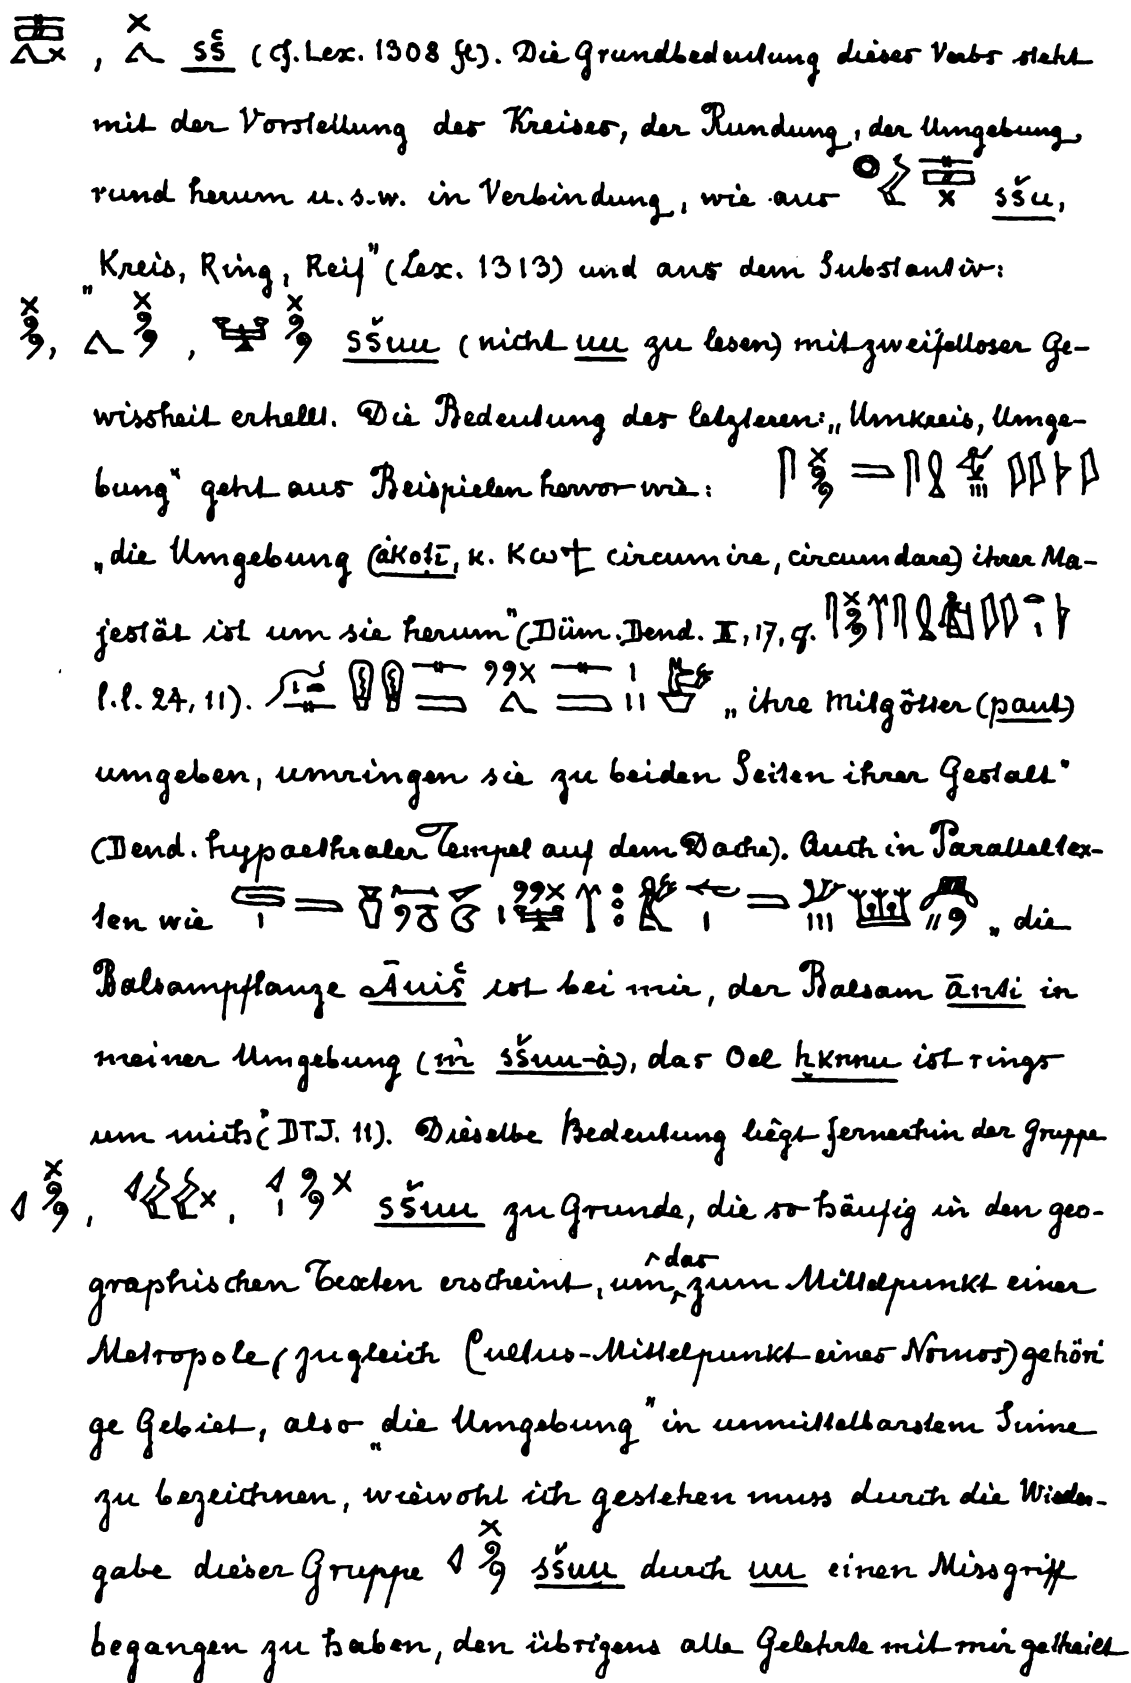 , sš (cf. Lex. 1308 fl). Die Grundbedeutung dieses Verbs steht
mit der Vorstellung des Kreises, der Rundung, der Umgebung,
rund herum u. s. w. in Verbindung, wie aus sšu,
„Kreis, Ring, Reif" (Lex. 1313) und aus dem Substantiv:
, , sšuu (nicht uu zu lesen) mit zweifelloser Ge-
wissheit erhellt. Die Bedeutung des letzteren: „Umkreis, Umge-
bung" geht aus Beispielen hervor wie:
„die Umgebung (ȧkotī, k. Kωϯ circumire, circumdare) ihrer Ma-
jestät ist um sie herum" (Düm. Dend. II, 17, cf.
l. l. 24, 11). „ihre Mitgötter (paut)
umgeben, umringen sie zu beiden Seiten ihrer Gestalt"
(Dend. hypaethraler Tempel auf dem Dache). Auch in Paralleltex-
ten wie „die
Balsampflanze Āuiš ist bei mir, der Balsam ānti in
meiner Umgebung (ṁ sšuu-ȧ), das Oel ḥknnu ist rings
um mich" (DTJ. 11). Dieselbe Bedeutung liegt fernerhin der Gruppe
, , sšuu zu Grunde, die so häufig in den geo-
graphischen Texten erscheint, um das zum Mittelpunkt einer
Metropole (zugleich Cultus-Mittelpunkt eines Nomos) gehöri
ge Gebiet, also „die Umgebung" in unmittelbarstem Sinne
zu bezeichnen, wiewohl ich gestehen muss durch die Wieder-
gabe dieser Gruppe sšuu durch uu einen Missgriff
begangen zu haben, den übrigens alle Gelehrte mit mir getheilt